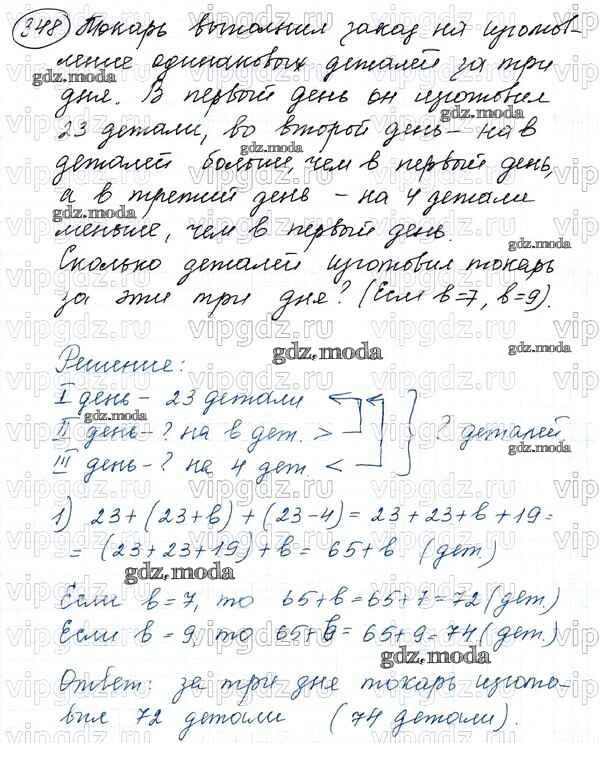 348) Токарь выполнил заказ на изготов-
ление одинаковых деталей за три
дня. В первый день он изготовил
23 детали, во второй день – на b
деталей больше, чем в первый день,
а в третий день – на 4 детали
меньше, чем в первый день.
Сколько деталей изготовил токарь
за эти три дня? (Если b=7, b=9).
Решение:
I день – 23 детали
II день – ? на b дет. >
III день – ? на 4 дет. <
? деталей
1) 23+(23+b)+(23-4)=23+23+b+19=
=(23+23+19)+b=65+b (дет.)
Если b=7, то 65+b=65+7=72(дет.)
Если b=9, то 65+b=65+9=74(дет.)
Ответ: за три дня токарь изгото-
вил 72 детали (74 детали).
gdz.moda
vipgdz.ru